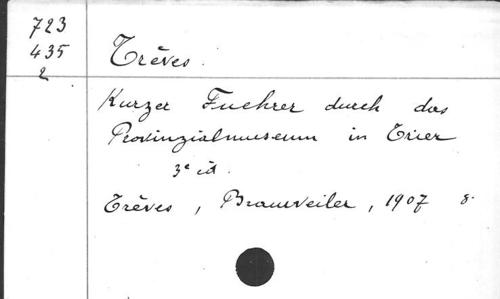 723
435
2
Trèves.
Kurzer Fuehrer durch das
Provinzialmuseum in Trier
3e éd.
Trèves, Brauweiler, 1907 8.